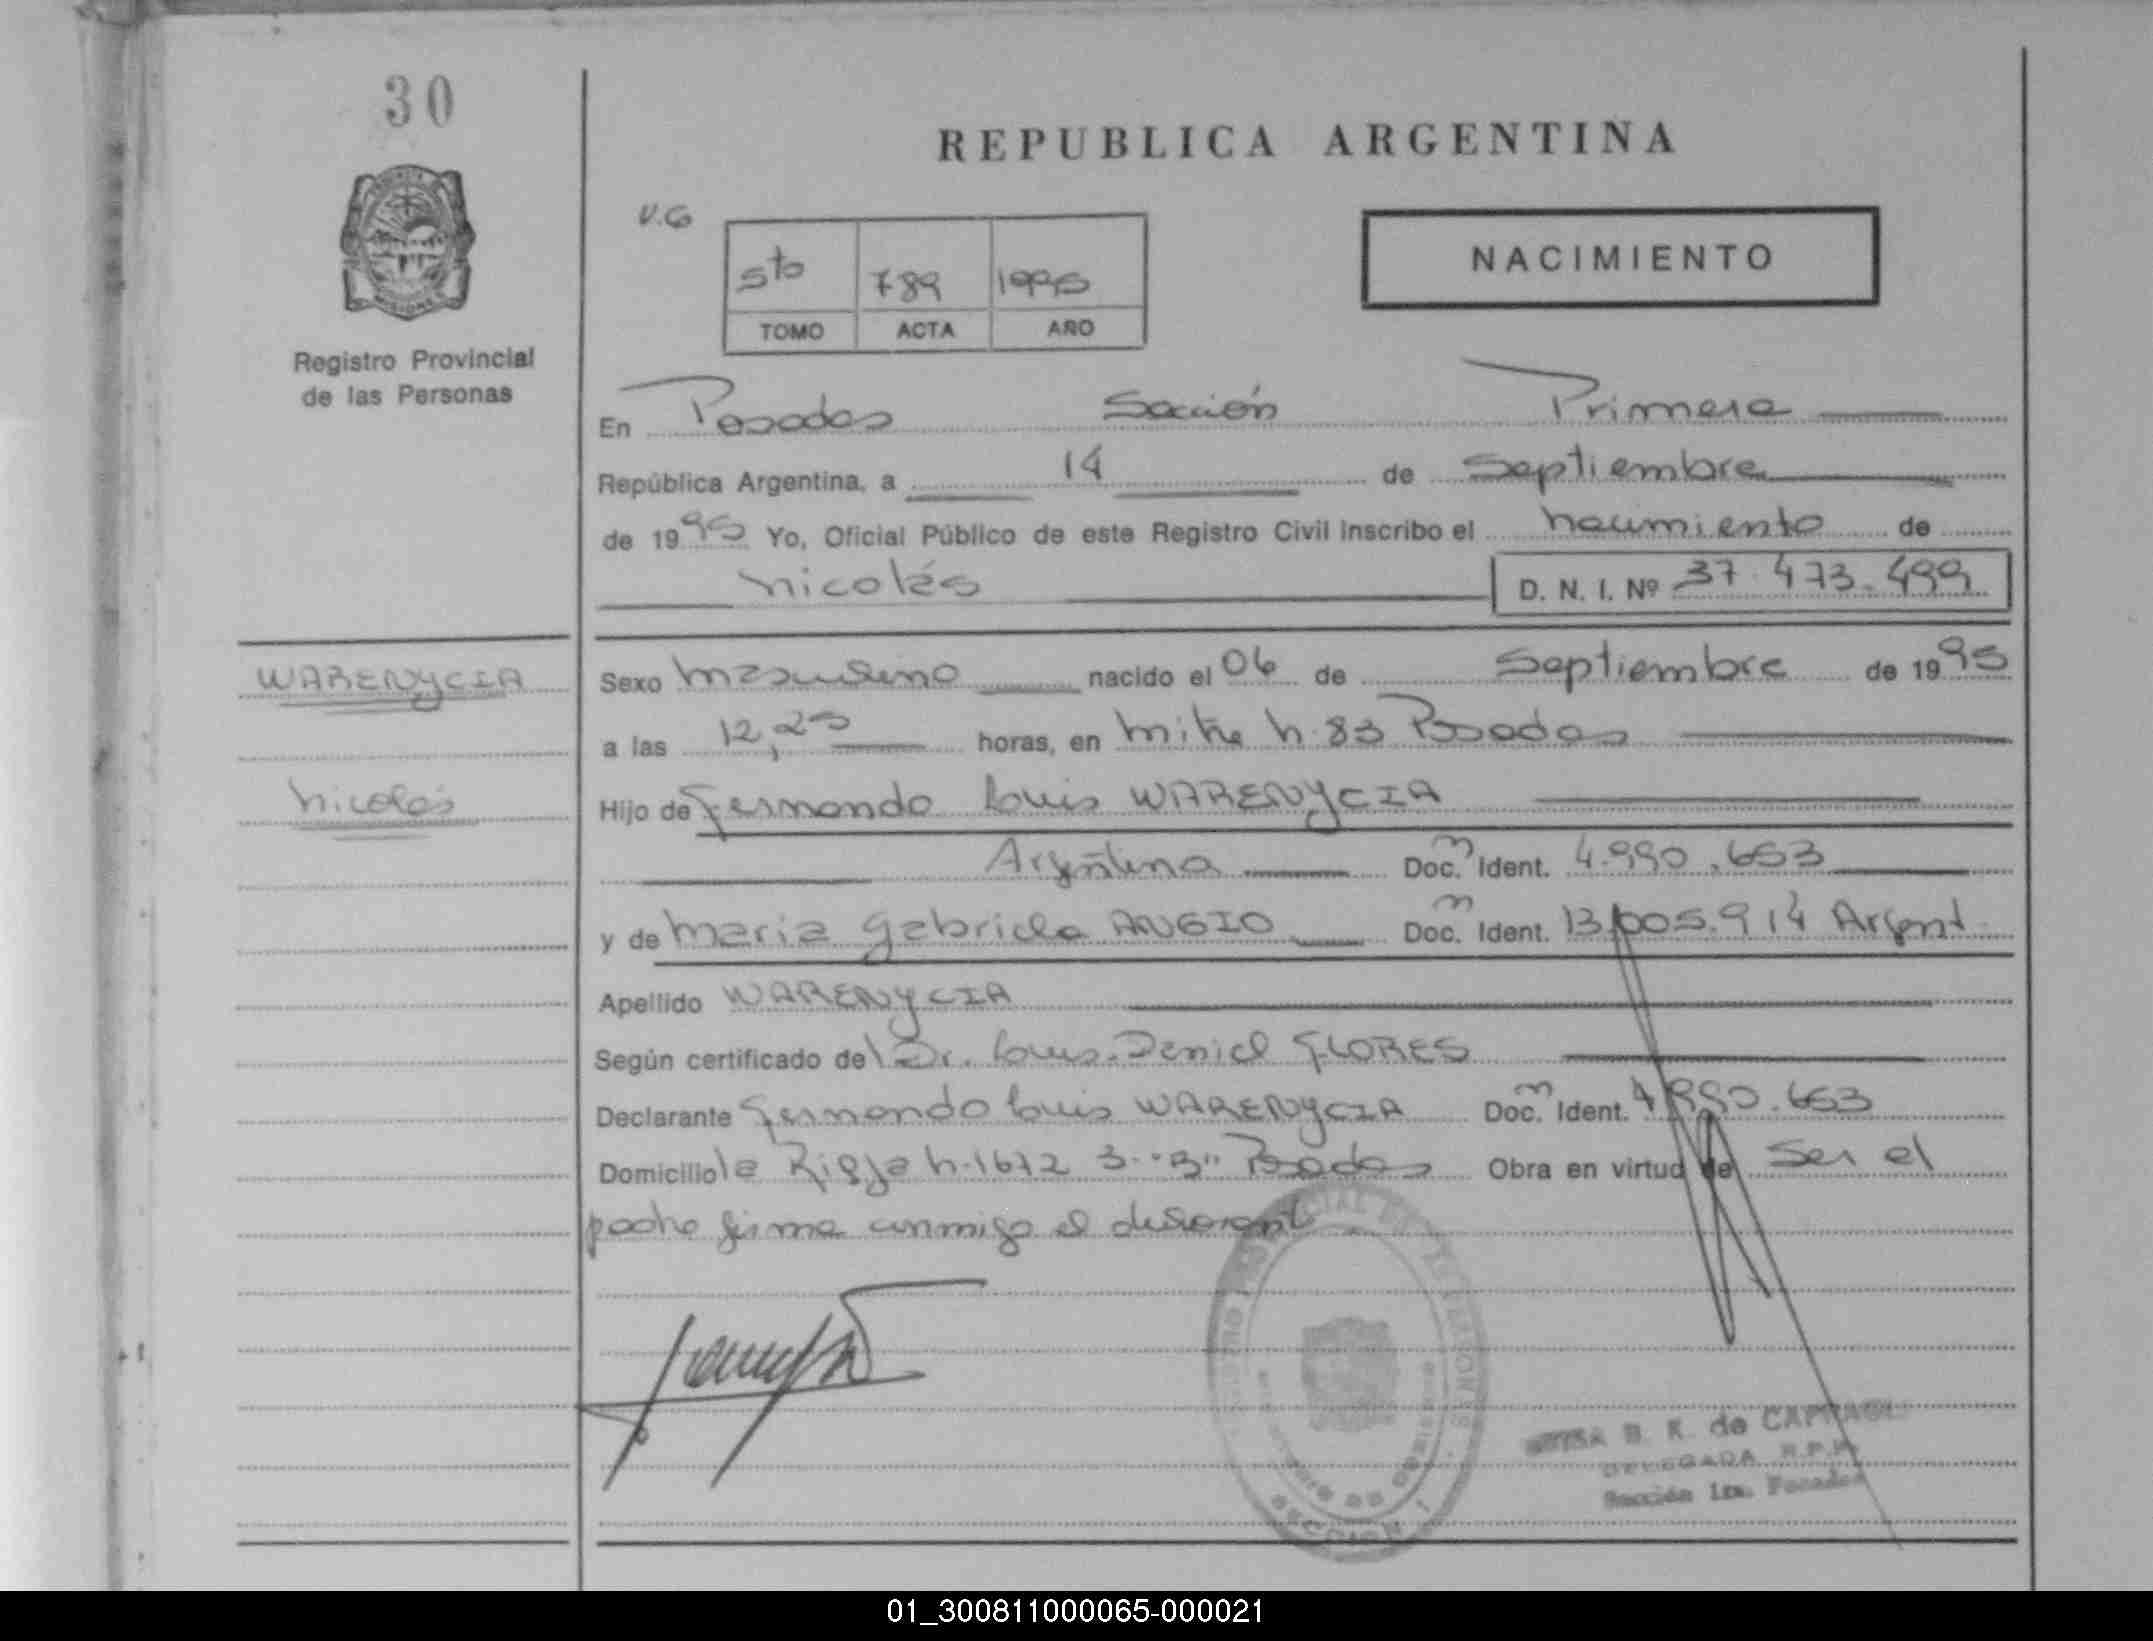 30
REPUBLICA ARGENTINA
V.G
5to 789 1995
TOMO ACTA AÑO
NACIMIENTO
Registro Provincial
de las Personas
En Posadas Sección Primera
República Argentina, a 14 de Septiembre
de 1995 Yo, Oficial Público de este Registro Civil inscribo el nacimiento de
Nicolás D. N. I. Nº 37.473.499
WARENYCIA
Nicolás
Sexo masculino nacido el 06 de Septiembre de 1995
a las 12,25 horas, en Mitre n. 83 Posadas
Hijo de Fernando Luis WARENYCIA
Argentino Doc. m Ident. 4.990.653
y de María Gabriela ANGIO Doc. m Ident. 13.005.914 Argent.
Apellido WARENYCIA
Según certificado de Dr. Luis Daniel FLORES
Declarante Fernando Luis WARENYCIA Doc. m Ident. 4.990.653
Domicilio la Rioja n. 1672 3- "B" Posadas Obra en virtud de Ser el
padre firma conmigo el declarante
B. K. de
DELEGADA R.P.P.
Sección 1ra. Posadas
SECCION 1
01_300811000065-000021